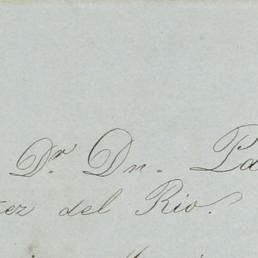 Dr Dn. Pa
ez del Rio.